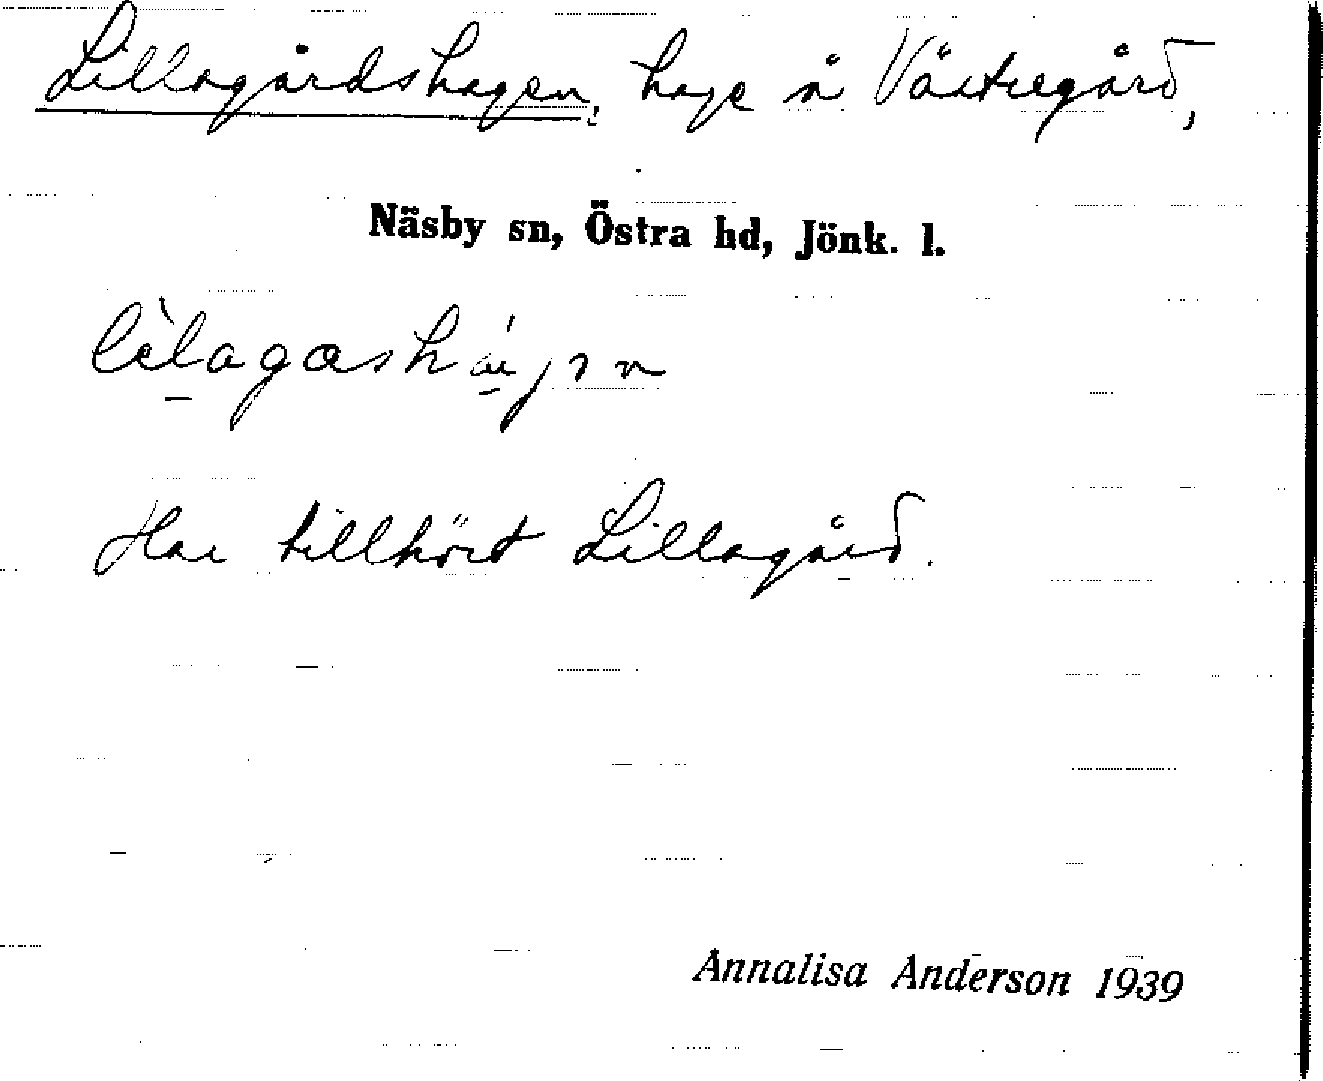 Lillagårdshagen, hage å Västregård,
Näsby sn, Östra hd, Jönk. l.
Har tillhört Lillagård.
Annalisa Anderson 1939